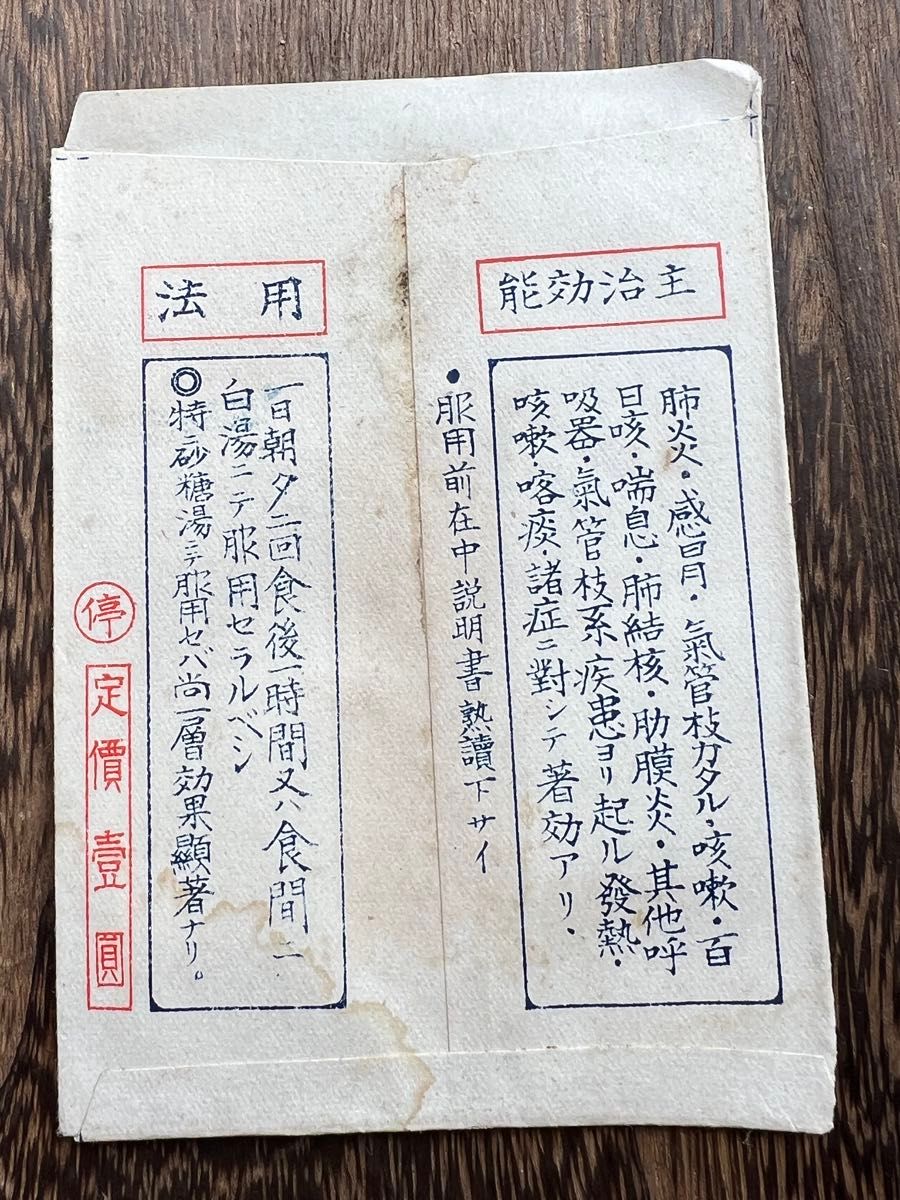 主治効能
肺炎・感冒・氣管枝カタル・咳嗽・百
日咳・喘息・肺結核・肋膜炎・其他呼
吸器・氣管枝系疾患ヨリ起ル發熱・
咳嗽・喀痰・諸症ニ對シテ著効アリ・
●服用前在中説明書熟讀下サイ
用法
一日朝夕二回食後一時間又ハ食間ニ
白湯ニテ服用セラルベシ
◎特ニ砂糖湯ニテ服用セバ尚一層効果顯著ナリ。
停
定價壹圓